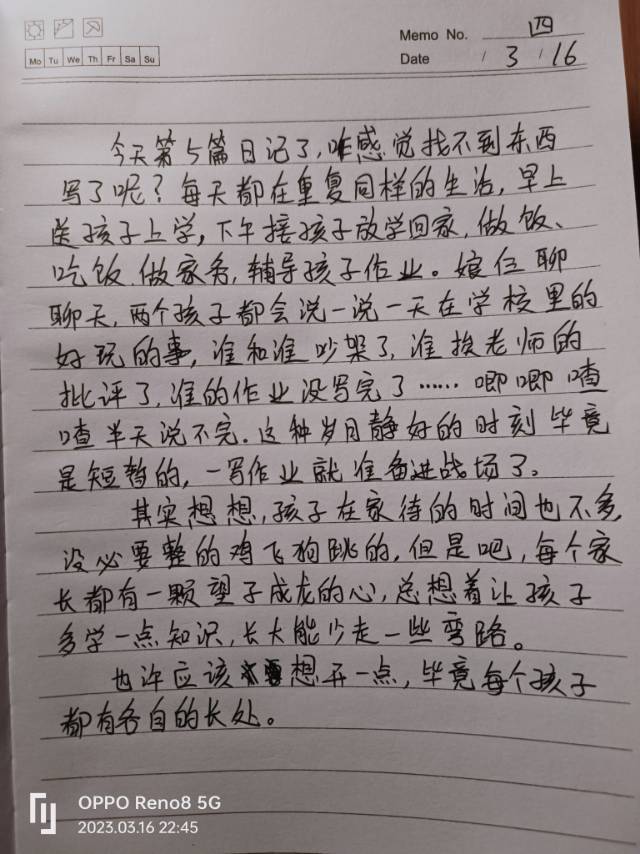 Memo No. 四
Mo Tu We Th Fr Sa Su
Date / 3 / 16
今天第5篇日记了,咋感觉找不到东西
写了呢?每天都在重复同样的生活,早上
送孩子上学,下午接孩子放学回家,做饭、
吃饭、做家务,辅导孩子作业。娘仨聊
聊天,两个孩子都会说一说一天在学校里的
好玩的事,谁和谁吵架了,谁挨老师的
批评了,谁的作业没写完了……唧唧喳
喳半天说不完.这种岁月静好的时刻毕竟
是短暂的,一写作业就准备进战场了。
其实想想,孩子在家待的时间也不多,
没必要整的鸡飞狗跳的,但是吧,每个家
长都有一颗望子成龙的心,总想着让孩子
多学一点知识,长大能少走一些弯路。
也许应该想开一点,毕竟每个孩子
都有各自的长处。
OPPO Reno8 5G
2023.03.16 22:45